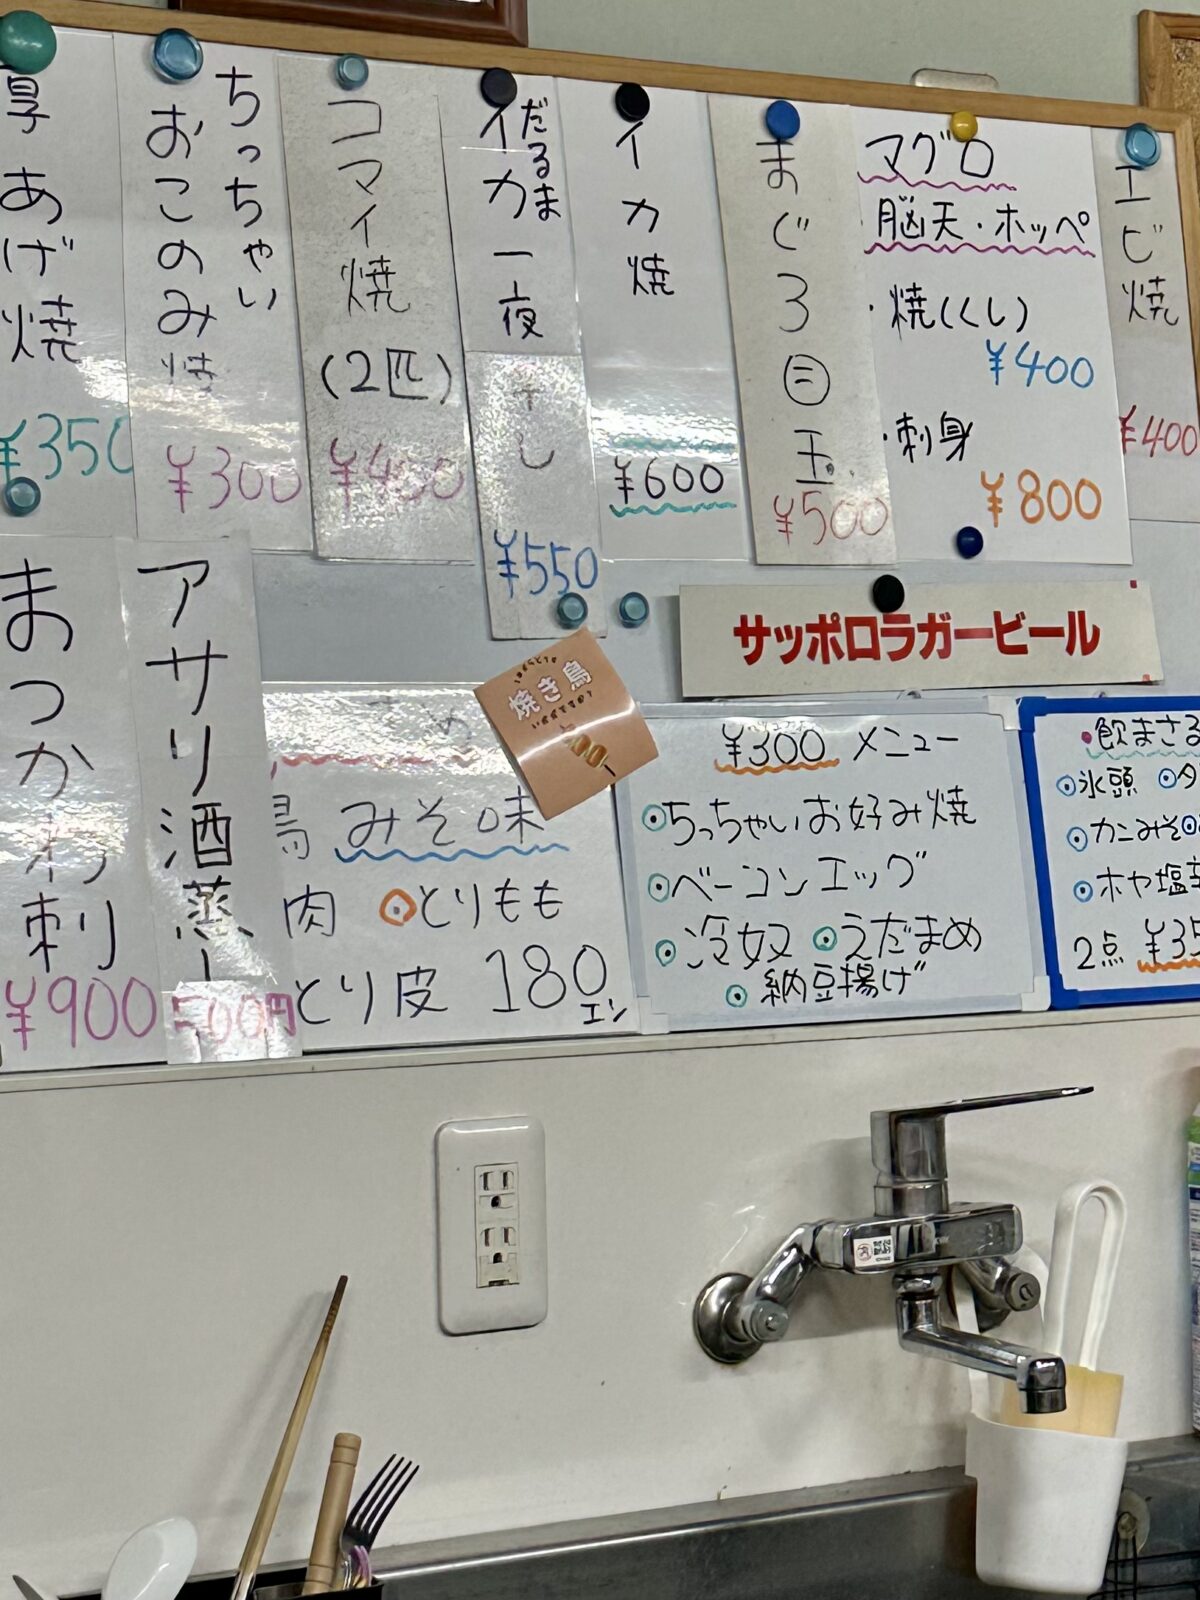 厚あげ焼
¥350
ちっちゃい
おこのみ焼
¥300
コマイ焼
(2匹)
¥400
だるま
イカ一夜干し
¥550
イカ焼
¥600
まぐろ目玉
¥500
マグロ
脳天・ホッペ
・焼(くし)
¥400
・刺身
¥800
エビ焼
¥400
サッポロラガービール
まつかわ刺
¥900
アサリ酒蒸し
500円
焼き鳥
鳥 みそ味
肉 とりもも
とり皮 180エン
¥300 メニュー
ちっちゃいお好み焼
ベーコンエッグ
冷奴 えだまめ
納豆揚げ
飲まさる
氷頭 タ
カニみそ
ホヤ塩辛
2点 ¥35